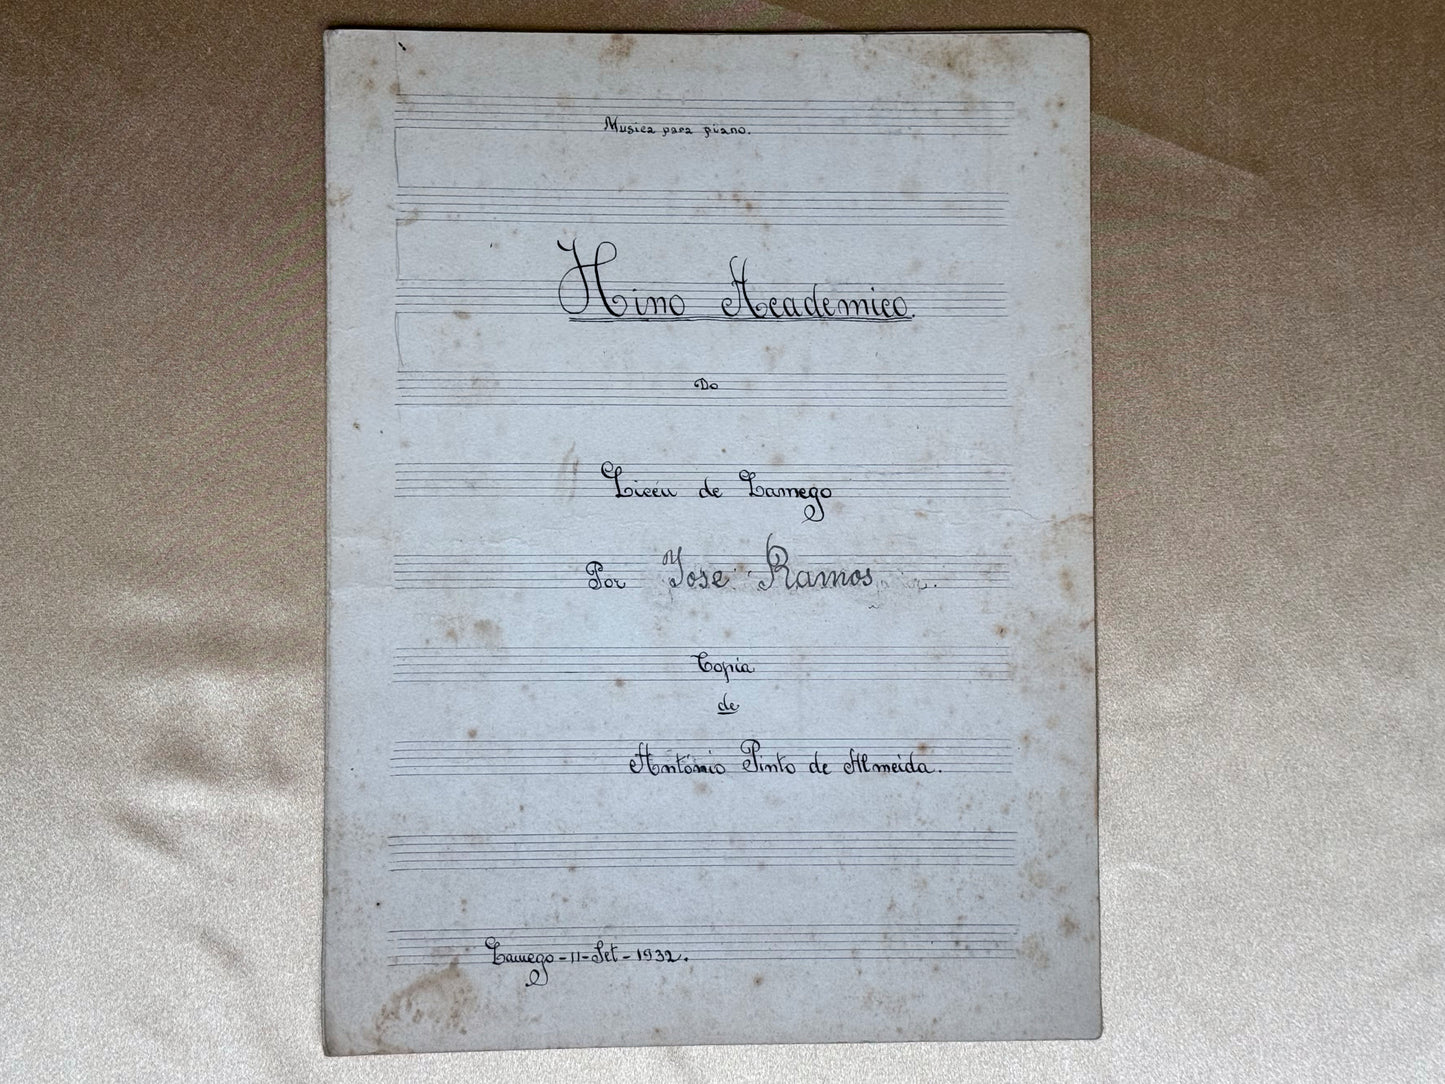 Musica para piano.
Hino Academico.
Do
Liceu de Lamego
Por José Ramos.
Copia
de
António Pinto de Almeida.
Lamego-11-Set-1932.